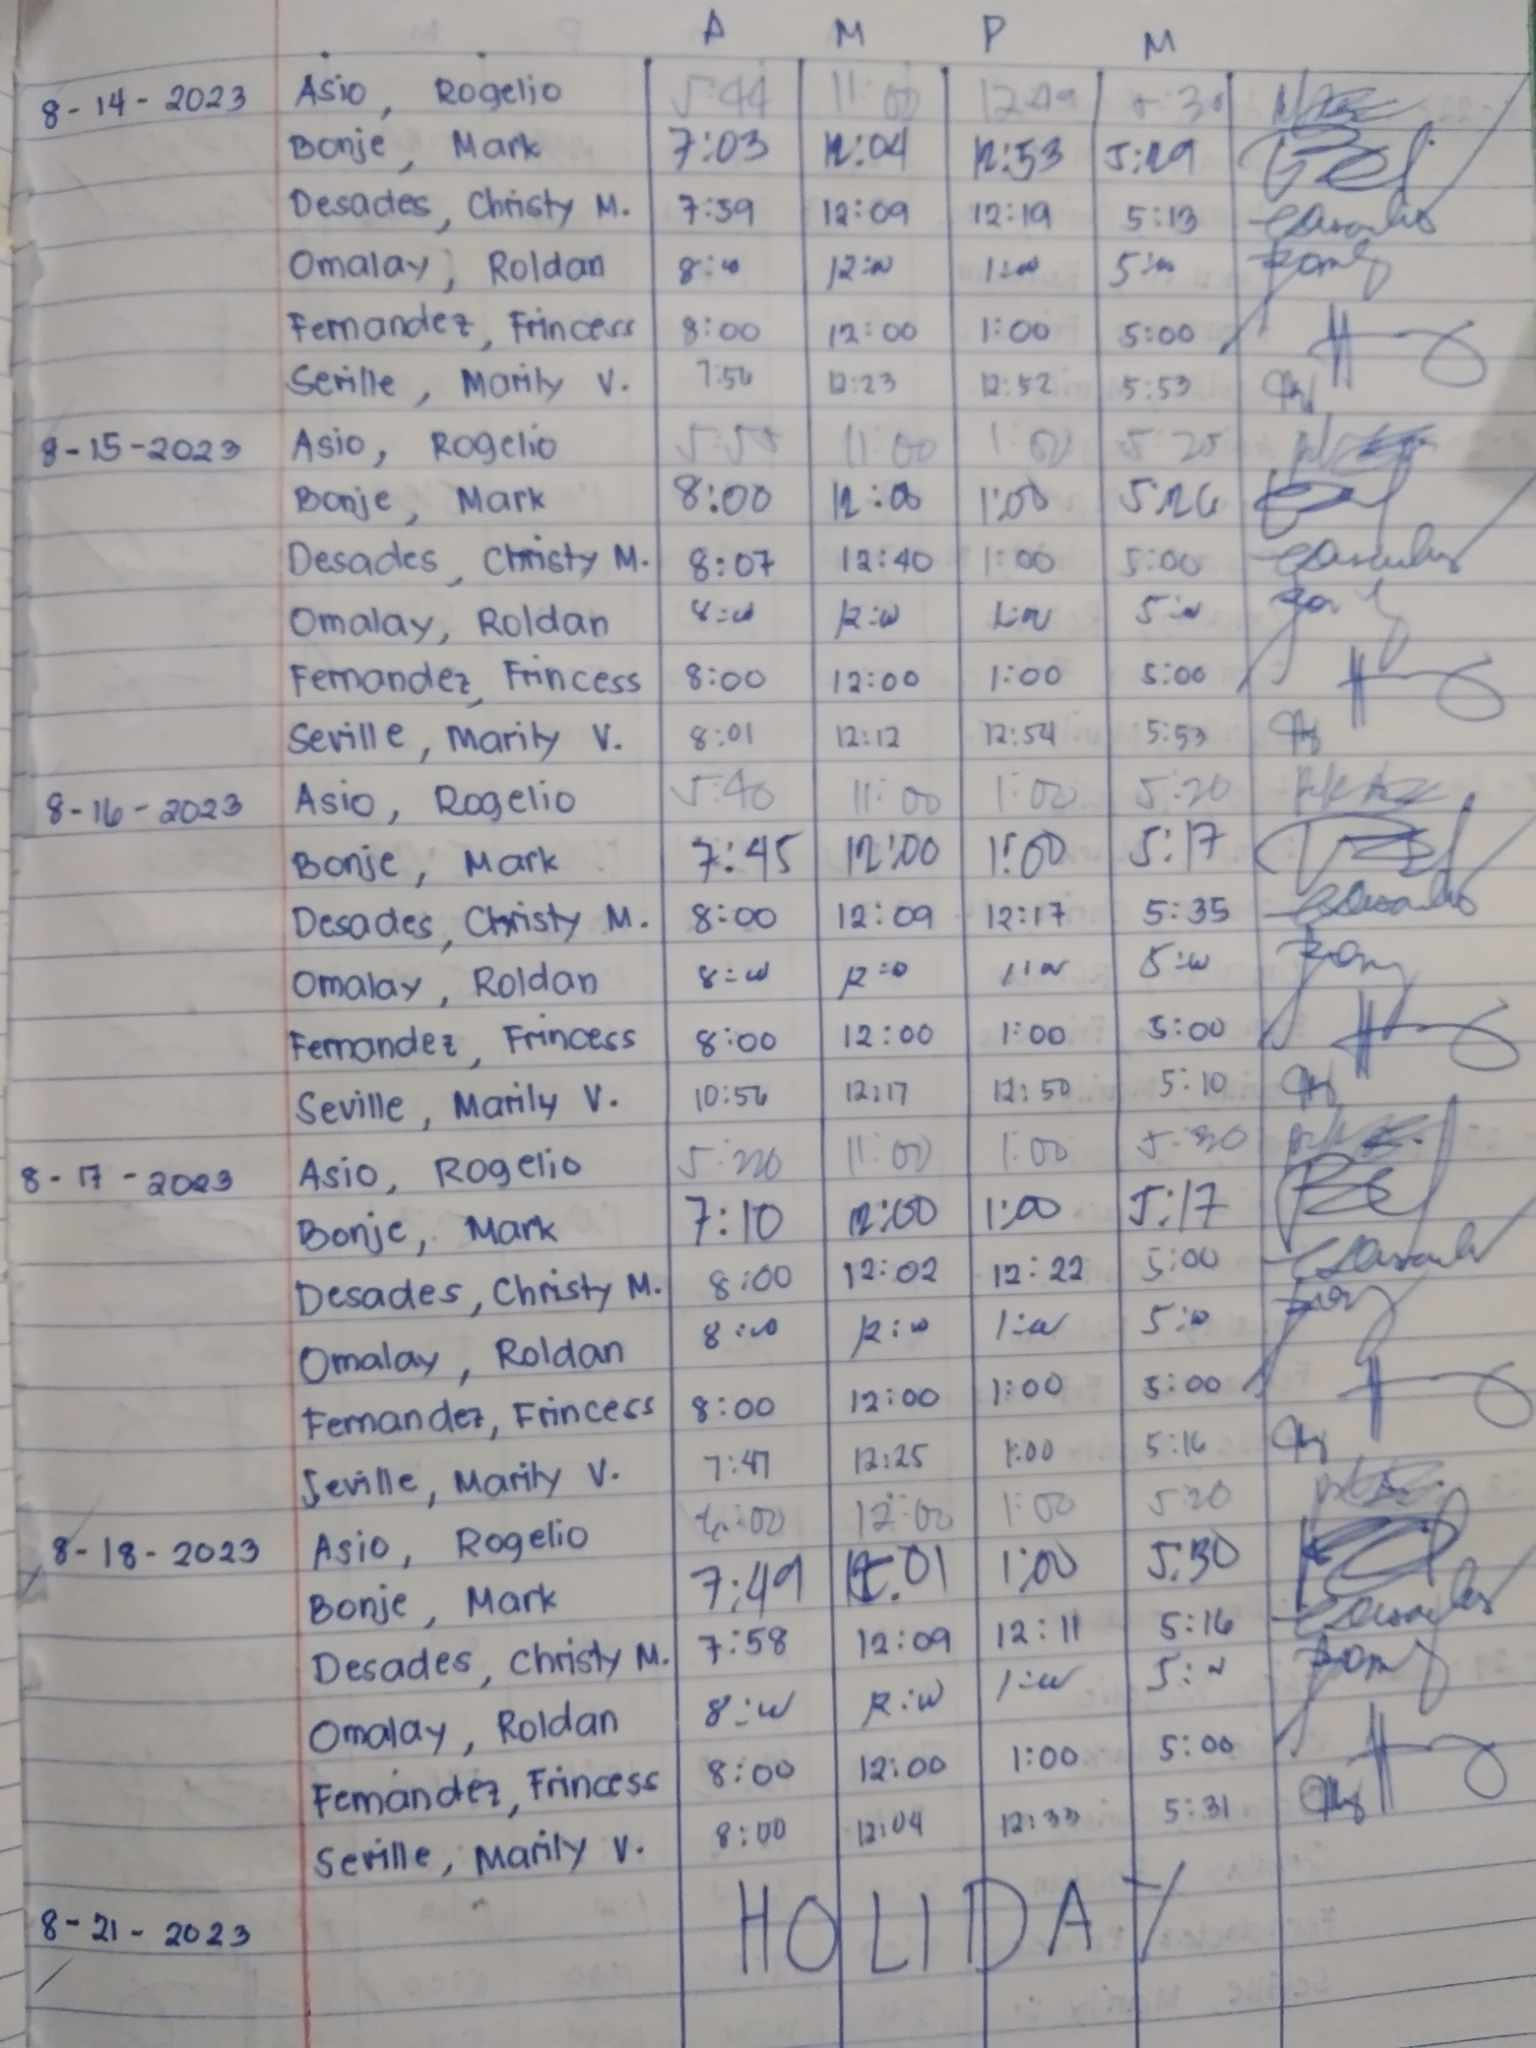 A M P M
8-14-2023 Asio, Rogelio 5:44 11:00 12:49 5:30
Bonje, Mark 7:03 12:04 12:53 5:29
Desades, Christy M. 7:59 12:09 12:19 5:13
Omalay, Roldan 8:00 12:00 1:00 5:00
Fernandez, Frincess 8:00 12:00 1:00 5:00
Seville, Marily V. 7:56 12:23 12:52 5:53
8-15-2023 Asio, Rogelio 11:00 1:00 5:25
Bonje, Mark 8:00 12:00 1:00 5:26
Desades, Christy M. 8:07 12:40 1:00 5:00
Omalay, Roldan 8:00 12:00 1:00 5:00
Fernandez, Frincess 8:00 12:00 1:00 5:00
Seville, Marily V. 8:01 12:12 12:54 5:53
8-16-2023 Asio, Rogelio 5:40 11:00 1:00 5:20
Bonje, Mark 7:45 12:00 1:00 5:17
Desades, Christy M. 8:00 12:09 12:17 5:35
Omalay, Roldan 8:00 12:00 1:00 5:00
Fernandez, Frincess 8:00 12:00 1:00 5:00
Seville, Marily V. 10:56 12:17 12:50 5:10
8-17-2023 Asio, Rogelio 5:20 11:00 1:00
Bonje, Mark 7:10 12:00 1:00 5:17
Desades, Christy M. 8:00 12:02 12:22 5:00
Omalay, Roldan 8:00 12:00 1:00 5:00
Fernandez, Frincess 8:00 12:00 1:00 5:00
Seville, Marily V. 7:47 12:25 1:00 5:16
8-18-2023 Asio, Rogelio 12:00 1:00 5:20
Bonje, Mark 7:49 12:01 1:00 5:30
Desades, Christy M. 7:58 12:09 12:11 5:16
Omalay, Roldan 8:00 12:00 1:00 5:00
Fernandez, Frincess 8:00 12:00 1:00 5:00
Seville, Marily V. 8:00 12:04 12:33 5:31
8-21-2023 HOLIDAY